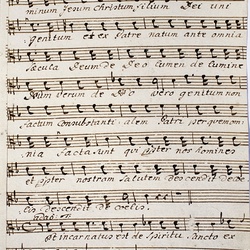 minum Jesum Christum filium Dei uni
genitum et ex Patre natum ante omnia
sæcula Deum de Deo lumen de lumine
Deum verum de Deo vero genitum non
factum Consubstanti alem Patri per quem om
nia facta sunt qui propter nos homines
et propter nostram salutem descendit de cæ
lis descendit de cælis
et incarnatus est de Spiritu Sancto ex